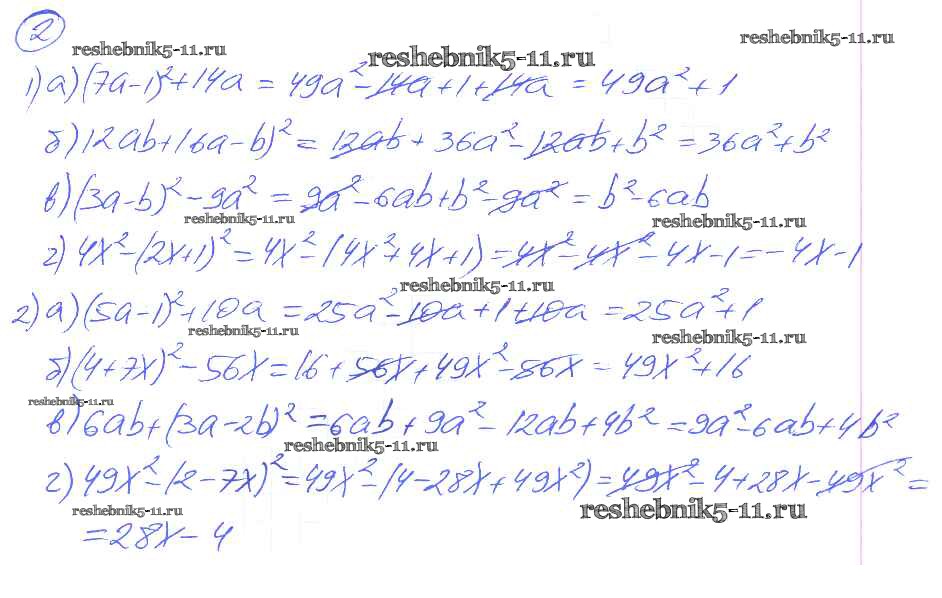 2
reshebnik5-11.ru
reshebnik5-11.ru
reshebnik5-11.ru
1) а) (7a-1)² + 14a = 49a² - 14a + 1 + 14a = 49a² + 1
б) 12ab + (6a - b)² = 12ab + 36a² - 12ab + b² = 36a² + b²
в) (3a-b)² - 9a² = 9a² - 6ab + b² - 9a² = b² - 6ab
reshebnik5-11.ru
reshebnik5-11.ru
г) 4x² - (2x+1)² = 4x² - (4x² + 4x + 1) = 4x² - 4x² - 4x - 1 = -4x - 1
reshebnik5-11.ru
2) а) (5a-1)² + 10a = 25a² - 10a + 1 + 10a = 25a² + 1
reshebnik5-11.ru
reshebnik5-11.ru
б) (4+7x)² - 56x = 16 + 56x + 49x² - 56x = 49x² + 16
reshebnik5-11.ru
в) 6ab + (3a-2b)² = 6ab + 9a² - 12ab + 4b² = 9a² - 6ab + 4b²
reshebnik5-11.ru
г) 49x² - (2-7x)² = 49x² - (4 - 28x + 49x²) = 49x² - 4 + 28x - 49x² =
reshebnik5-11.ru
reshebnik5-11.ru
= 28x - 4